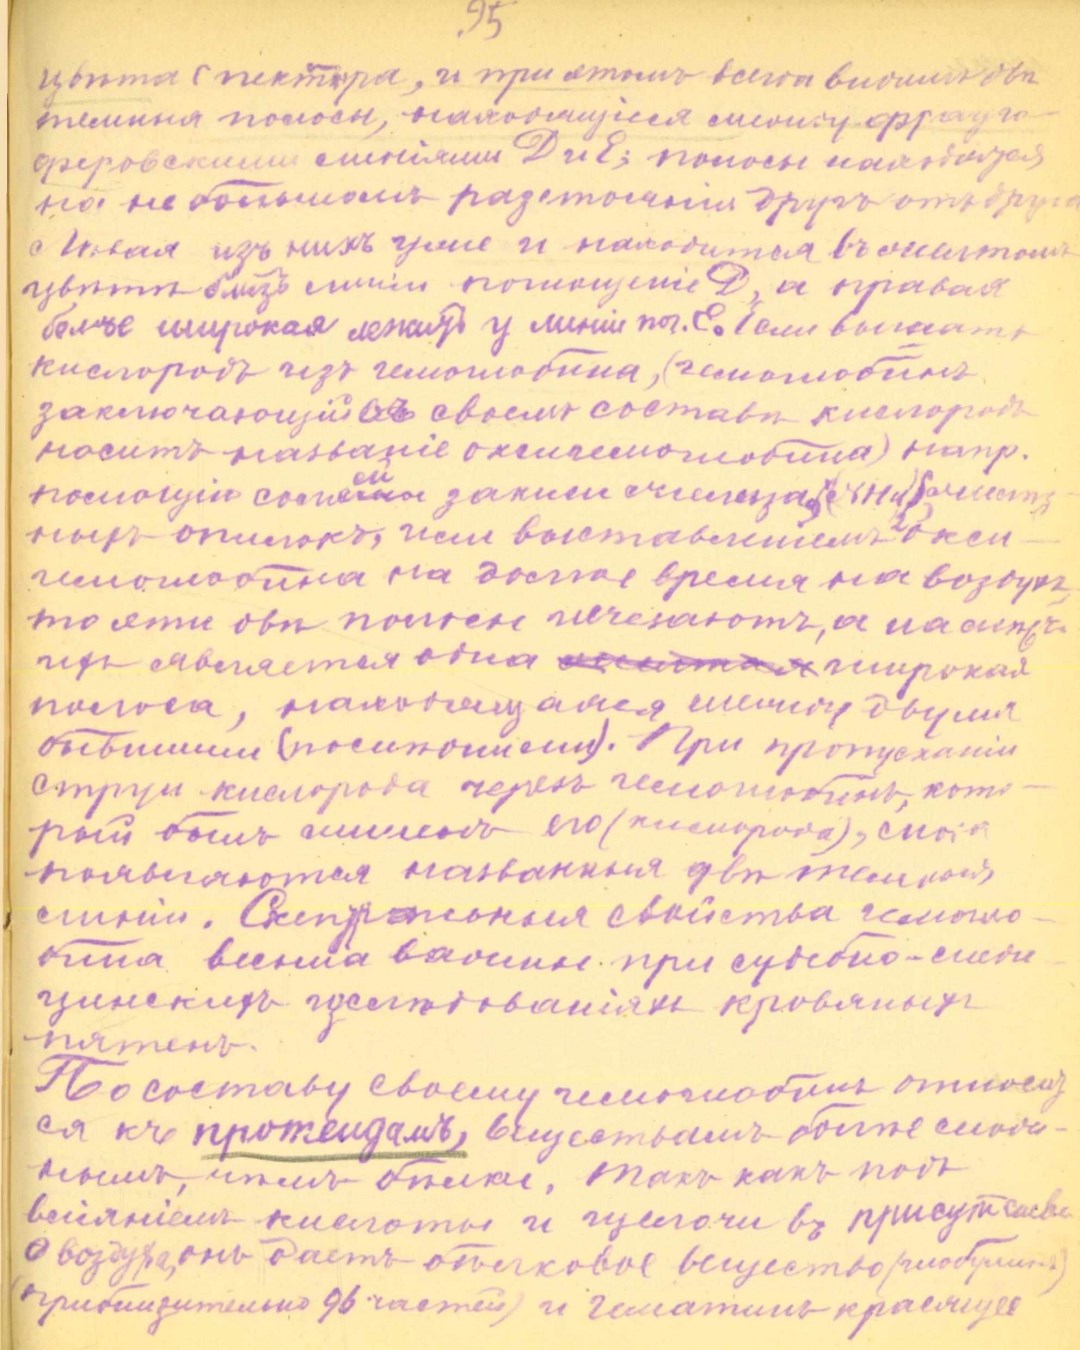 95
цвѣта спектра, и при этомъ всегда видимъ двѣ
темныя полосы, находящіеся между фрауго-
феровскими линіями D и E; полосы находятся
на небольшомъ разстояніи другъ отъ друга
Лѣвая изъ нихъ уже и находится въ желтомъ
цвѣтѣ близъ линіи поглощеніе D, а правая
болѣе широкая лежитъ у линіи пог. E. Если выгнать
кислородъ изъ гемоглобина, (гемоглобинъ
заключающій въ своемъ составѣ кислородъ
носитъ названіе оксигемоглобина) напр.
помощію солей закиси желѣза,
ныхъ опилокъ, или выставленіемъ окси-
гемоглобина на долгое время на воздухъ,
то эти двѣ полосы исчезаютъ, а на
ихъ является одна широкая
полоса, находящаяся между двумя
бывшими (посинѣлыми). При пропусканіи
струи кислорода черезъ гемоглобинъ, кото-
рый былъ лишенъ его (кислорода), снова
появляются названныя двѣ темныя
линіи. Спектральныя свойства гемогло-
бина весьма важны при судебно-меди-
цинскихъ изслѣдованіяхъ кровяныхъ
пятенъ.
По составу своему гемоглобинъ относит
ся къ протеидамъ, веществамъ болѣе слож-
нымъ, чѣмъ бѣлки, такъ какъ подъ
вліяніемъ кислоты и щелочи въ присутствіи
воздуха, онъ даетъ бѣлковое вещество (глобулинъ)
(приблизительно 96 частей) и гематинъ красящее